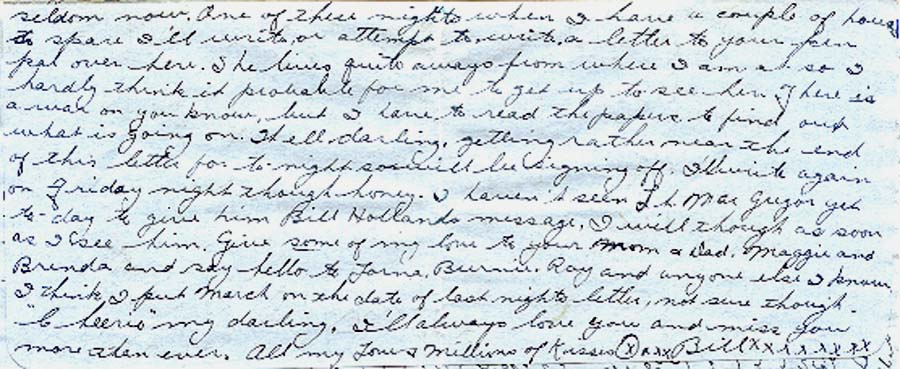 seldom now. One of these nights when I have a couple of hours
to spare I'll write, or attempt to write, a letter to your pen
pal over here. She lives quite aways from where I am at so I
hardly think it probable for me to get up to see her. There is
a war on you know, but I have to read the papers to find out
what is going on. Well darling, getting rather near the end
of this letter for to-night so will be signing off. I'll write again
on Friday night though honey. I haven't seen Mac Gregor yet
to-day to give him Bill Hollands message. I will though as soon
as I see him. Give some of my love to your Mom & Dad, Maggie and
Brenda and say hello to Lorna, Burnie, Ray and anyone else I know.
I think I put March on the date of last nights letter, not sure though.
"Cheerio" my darling. I'll always love you and miss you
more than ever. All my Love & Millions of Kisses x x x x Bill x x x x x x x x